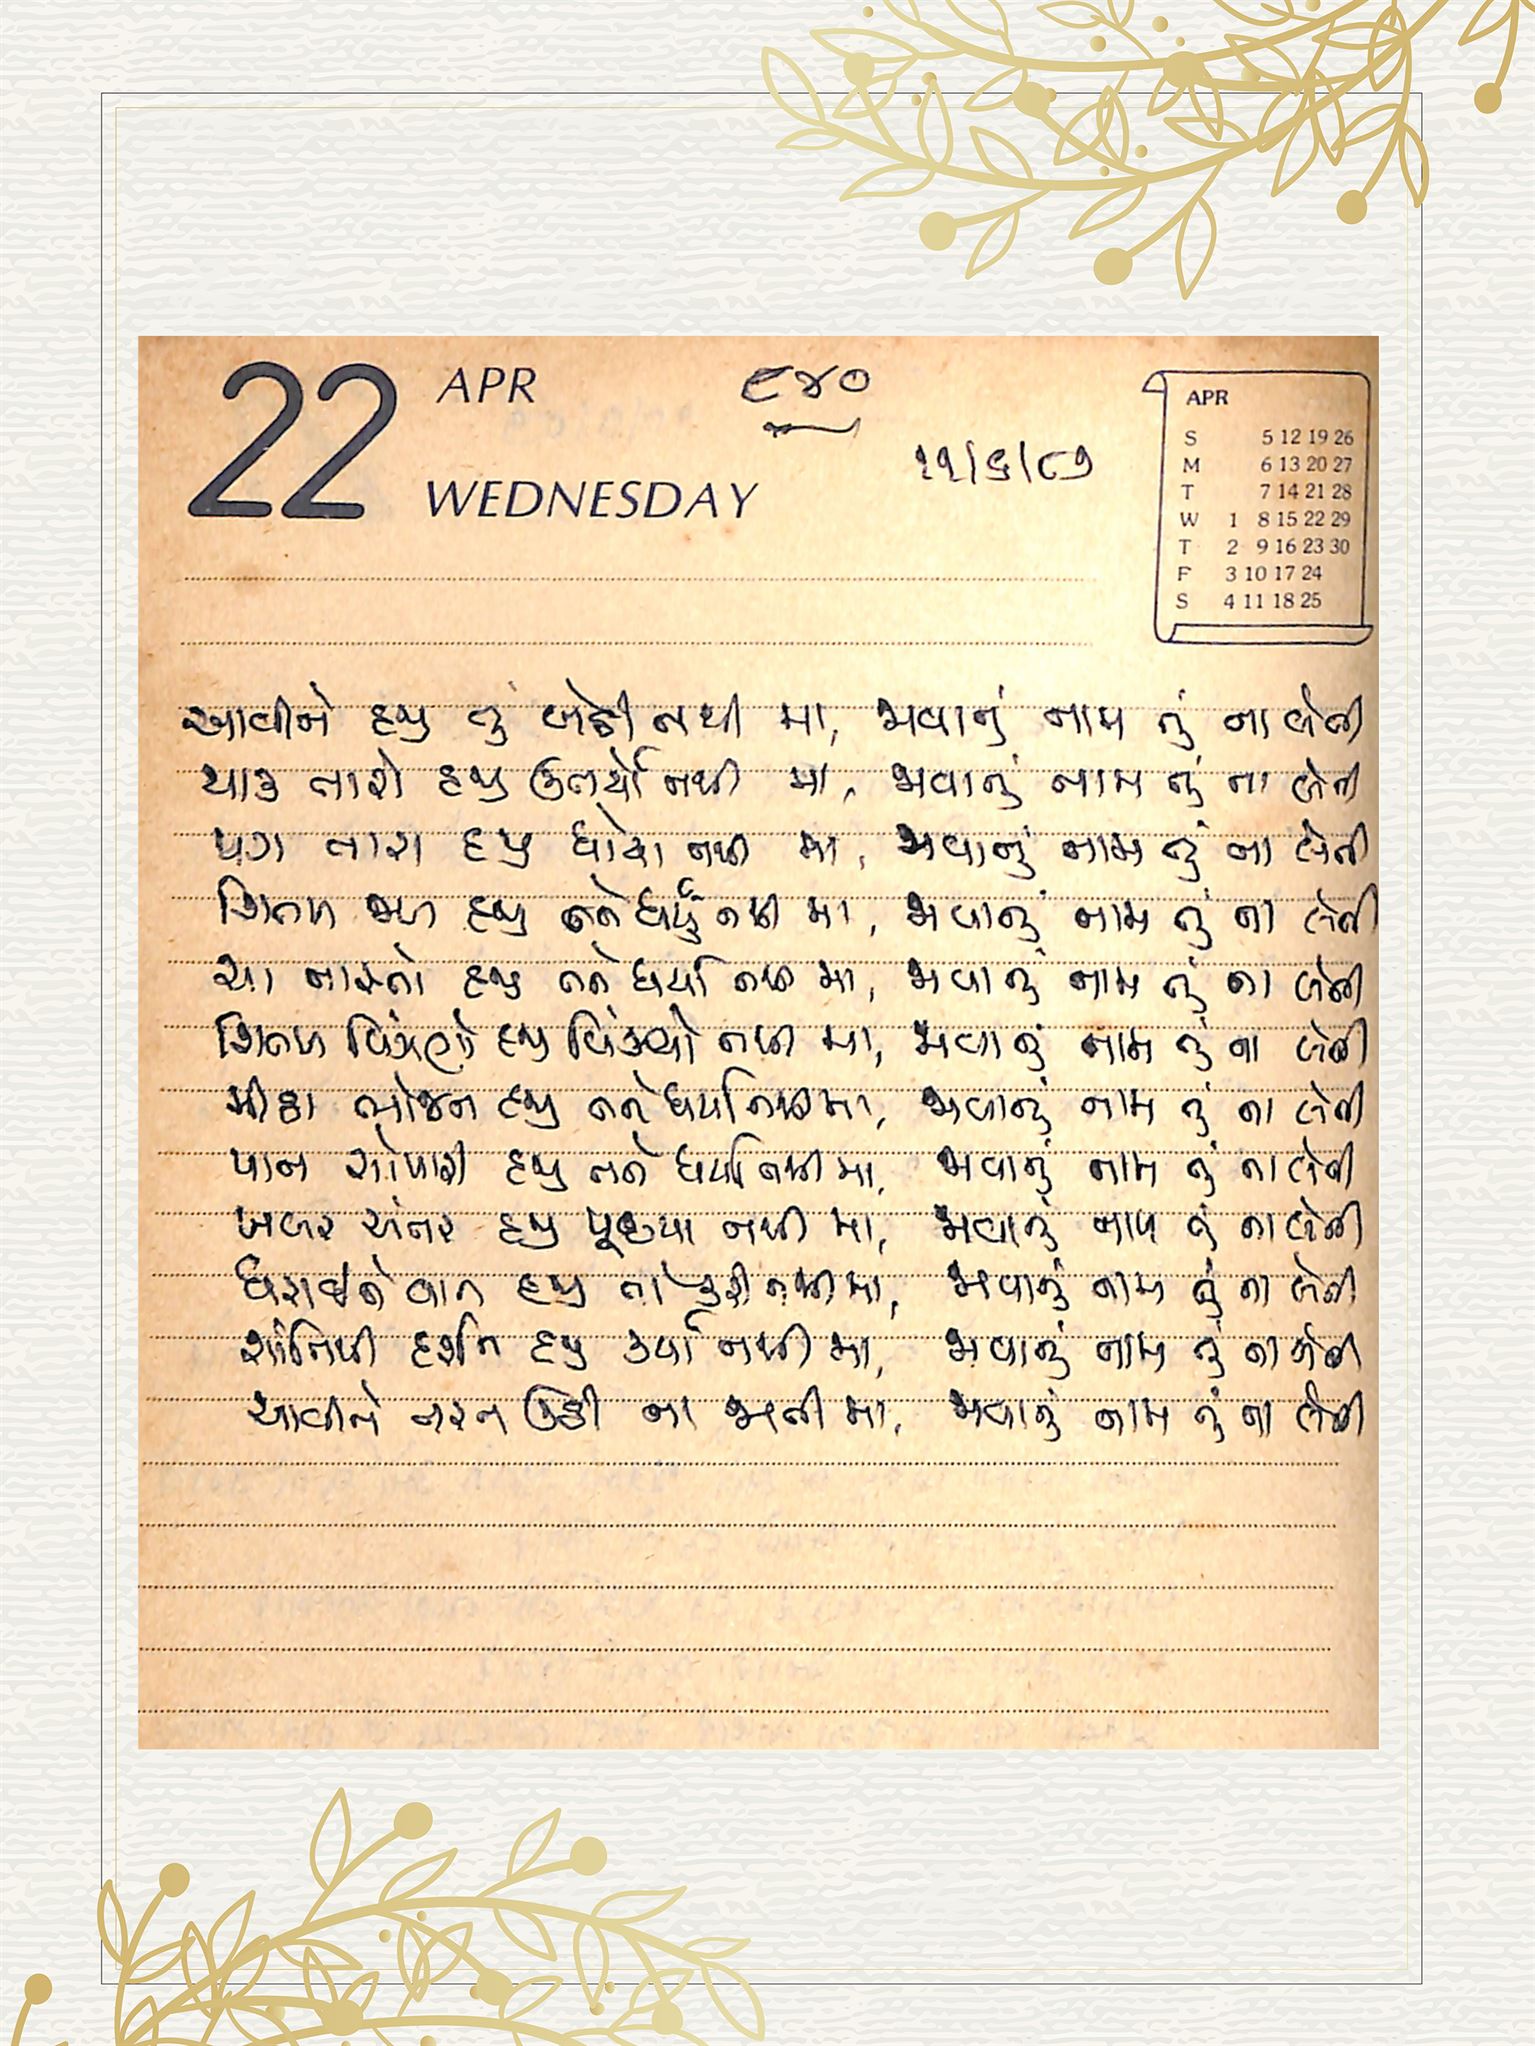 22 APR
૯૪૦
WEDNESDAY
૨૨/૬/૮૭
APR
S 5 12 19 26
M 6 13 20 27
T 7 14 21 28
W 1 8 15 22 29
T 2 9 16 23 30
F 3 10 17 24
S 4 11 18 25
આવીને હજુ તું બેઠી નથી મા, જવાનું નામ તું ના લેતી
થાક તારો હજુ ઉતર્યો નથી મા, જવાનું નામ તું ના લેતી
પગ તારા હજુ ધોયા નથી મા, જવાનું નામ તું ના લેતી
શિતળ જળ હજુ તને ધર્યું નથી મા, જવાનું નામ તું ના લેતી
ચા નાસ્તો હજુ તને ધર્યા નથી મા, જવાનું નામ તું ના લેતી
શિતળ વિંઝણો હજુ વિંઝ્યો નથી મા, જવાનું નામ તું ના લેતી
મીઠા ભોજન હજુ તને ધર્યા નથી મા, જવાનું નામ તું ના લેતી
પાન સોપારી હજુ તને ધર્યા નથી મા, જવાનું નામ તું ના લેતી
ખબર અંતર હજુ પૂછ્યા નથી મા, જવાનું નામ તું ના લેતી
ધરાઈને વાત હજુ તો કરી નથી મા, જવાનું નામ તું ના લેતી
શાંતિથી દર્શન હજુ કર્યા નથી મા, જવાનું નામ તું ના લેતી
આવીને તરત ઉઠી ના જાતી મા, જવાનું નામ તું ના લેતી